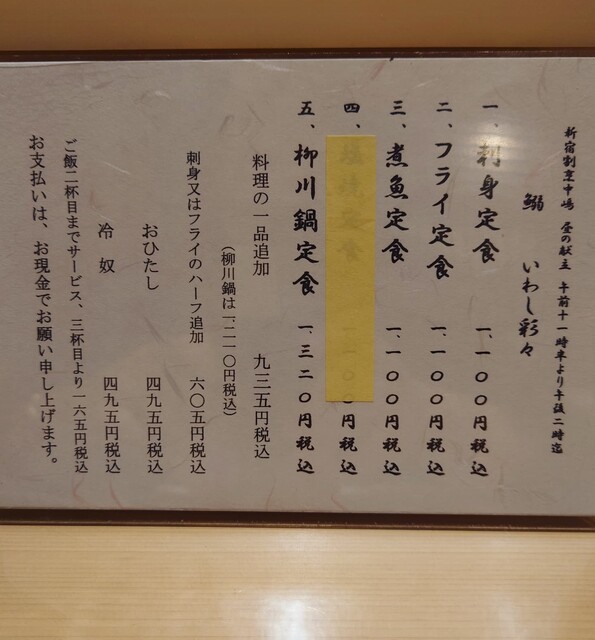 新宿割烹中嶋 昼の献立 午前十一時半より午後二時迄
鰯 いわし彩々
一、刺身定食 一、一〇〇円税込
二、フライ定食 一、一〇〇円税込
三、煮魚定食 一、一〇〇円税込
四、 一、一〇〇円税込
五、柳川鍋定食 一、三二〇円税込
料理の一品追加 九三五円税込
(柳川鍋は一、二一〇円税込)
刺身又はフライのハーフ追加 六〇五円税込
おひたし 四九五円税込
冷奴 四九五円税込
ご飯二杯目までサービス、三杯目より一六五円税込
お支払いは、お現金でお願い申し上げます。